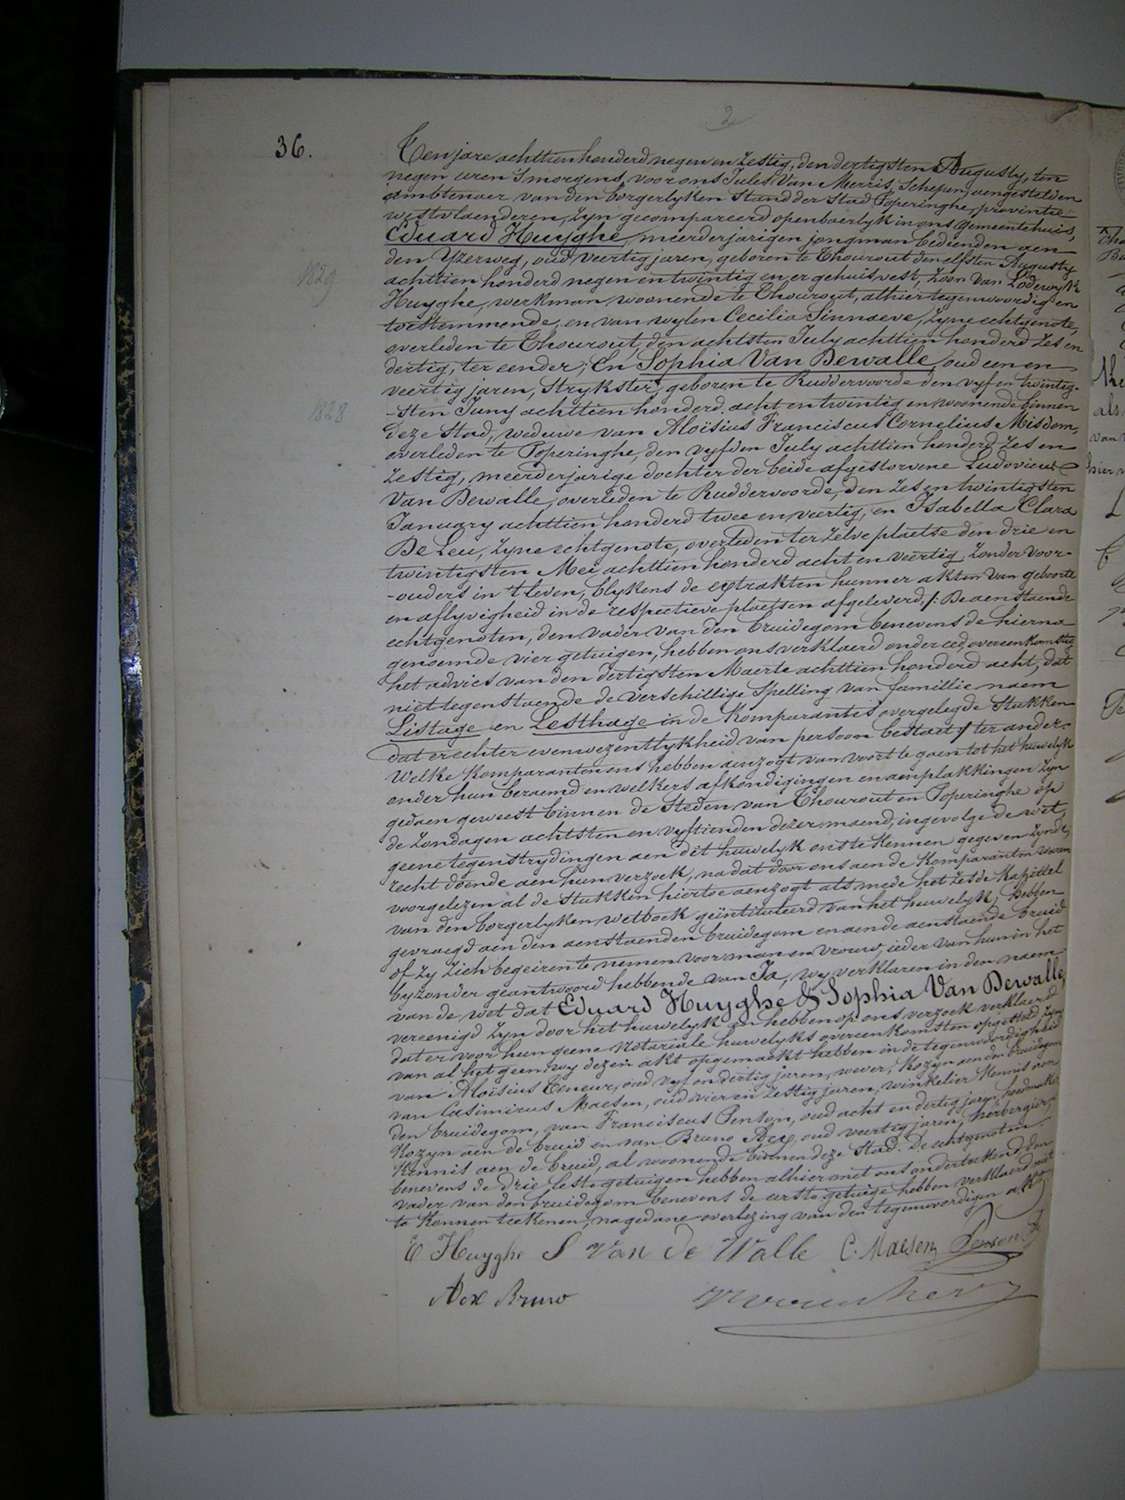 2
36.
Ten jare achttien honderd negen en zestig, den dertigsten Augusty, ten
negen uren 's morgends, voor ons Jules Van Merris, Schepen, aengestelden
ambtenaer van den borgerlyken Stand der Stad Poperinghe, provintie
westvlaenderen, zyn gecompareerd openbaerlyk in ons gemeentehuis,
Eduard Huyghe, meerderjarigen jongman bedienden aen
den Yzerweg, oud veertig jaren, geboren te Thourout den elfsten Augusty
1829
achttien honderd negen en twintig en er gehuisvest, zoon van Lodewyk
Huyghe, werkman, woonende te Thourout, alhier tegenwoordig en
toestemmende, en van wylen Cecilia Pinnaeve, zyne echtgenote,
overleden te Thourout, den achtsten July achttien honderd zes en
dertig, ter eender; En Sophia Van Dewalle, oud een en
veertig jaren, Strykster, geboren te Ruddervoorde den vyf en twintig-
1828
-sten Juny achttien honderd acht en twintig en woonende binnen
deze Stad, weduwe van Aloïsius Franciscus Cornelius Misdom,
overleden te Poperinghe, den vyfden July achttien honderd zes en
zestig, meerderjarige dochter der beide afgestorvene Ludovicus
Van Dewalle, overleden te Ruddervoorde, den zes en twintigsten
January achttien honderd twee en veertig, en Isabella Clara
De Leu, zyne echtgenote, overleden ter zelve plaetse den drie en
twintigsten Mei achttien honderd acht en veertig, zonder voor-
-ouders in 't leven, blykens de extrakten hunner akten van geboorte
en aflyvigheid in de respectieve plaetsen afgeleverd /: De aenstaende
echtgenoten, den vader van den bruidegom benevens de hierna
genoemde vier getuigen, hebben ons verklaerd onder eed overeenkomstig
het advies van den dertigsten Maerte achttien honderd acht, dat
niet tegenstaende de verschillige Spelling van famillie naem
Listage en Lesthage in de Komparantes overgelegde Stukken
dat er echter evenwezentlykheid van persoon bestaet / ter ander.
Welke Komparanten ons hebben aenzogt van voort te gaen tot het huwelyk
onder hun beraemd en welkers afkondigingen en aenplakkingen zyn
gedaen geweest binnen de Steden van Thourout en Poperinghe op
de Zondagen achtsten en vyftienden dezer maend, ingevolge de wet,
geene tegenstrydingen aen dit huwelyk ons te kennen gegeven zynde,
recht doende aen hun verzoek, na dat door ons aen de Komparanten waren
voorgelezen al de Stukken hiertoe aenzogt als mede het zesde Kapittel
van den borgerlyken wetboek geïntituleerd van het huwelyk; Hebben
gevraegd aen den aenstaenden bruidegom en aende aenstaende bruid
of zy zich begeiren te nemen voor man en vrouw, ieder van hun in het
byzonder geantwoord hebbende van Ja, wy verklaren in den naem
van de wet dat Eduard Huyghe & Sophia Van Dewalle,
vereenigd zyn door het huwelyk en hebben op ons verzoek verklaerd
dat er voor hun geene notariale huwelyks overeenkomsten opgesteld zyn,
van al het geen wy dezen akt opgemaekt hebben in de tegenwoordigheid
van Aloïsius Teneur, oud vyf en dertig jaren, wever, Kozyn aen den bruidegom
van Casimirus Maesen, oud vier en zestig jaren, winkelier Kennis aen
den bruidegom, van Franciscus Penson, oud acht en dertig jaren, hoedmaker
Kozyn aen de bruid en van Bruno Aex, oud veertig jaren, herbergier,
Kennis aen de bruid, al woonende binnen deze Stad. De echtgenoten
benevens de drie leste getuigen hebben alhier met ons onderteekend den
vader van den bruidegom benevens de eerste getuige hebben verklaerd niet
te Konnen teekenen, na gedane overlezing van den tegenwoordigen akt
E Huyghe S Van de Walle C. Maesen Penson F
Aex Bruno